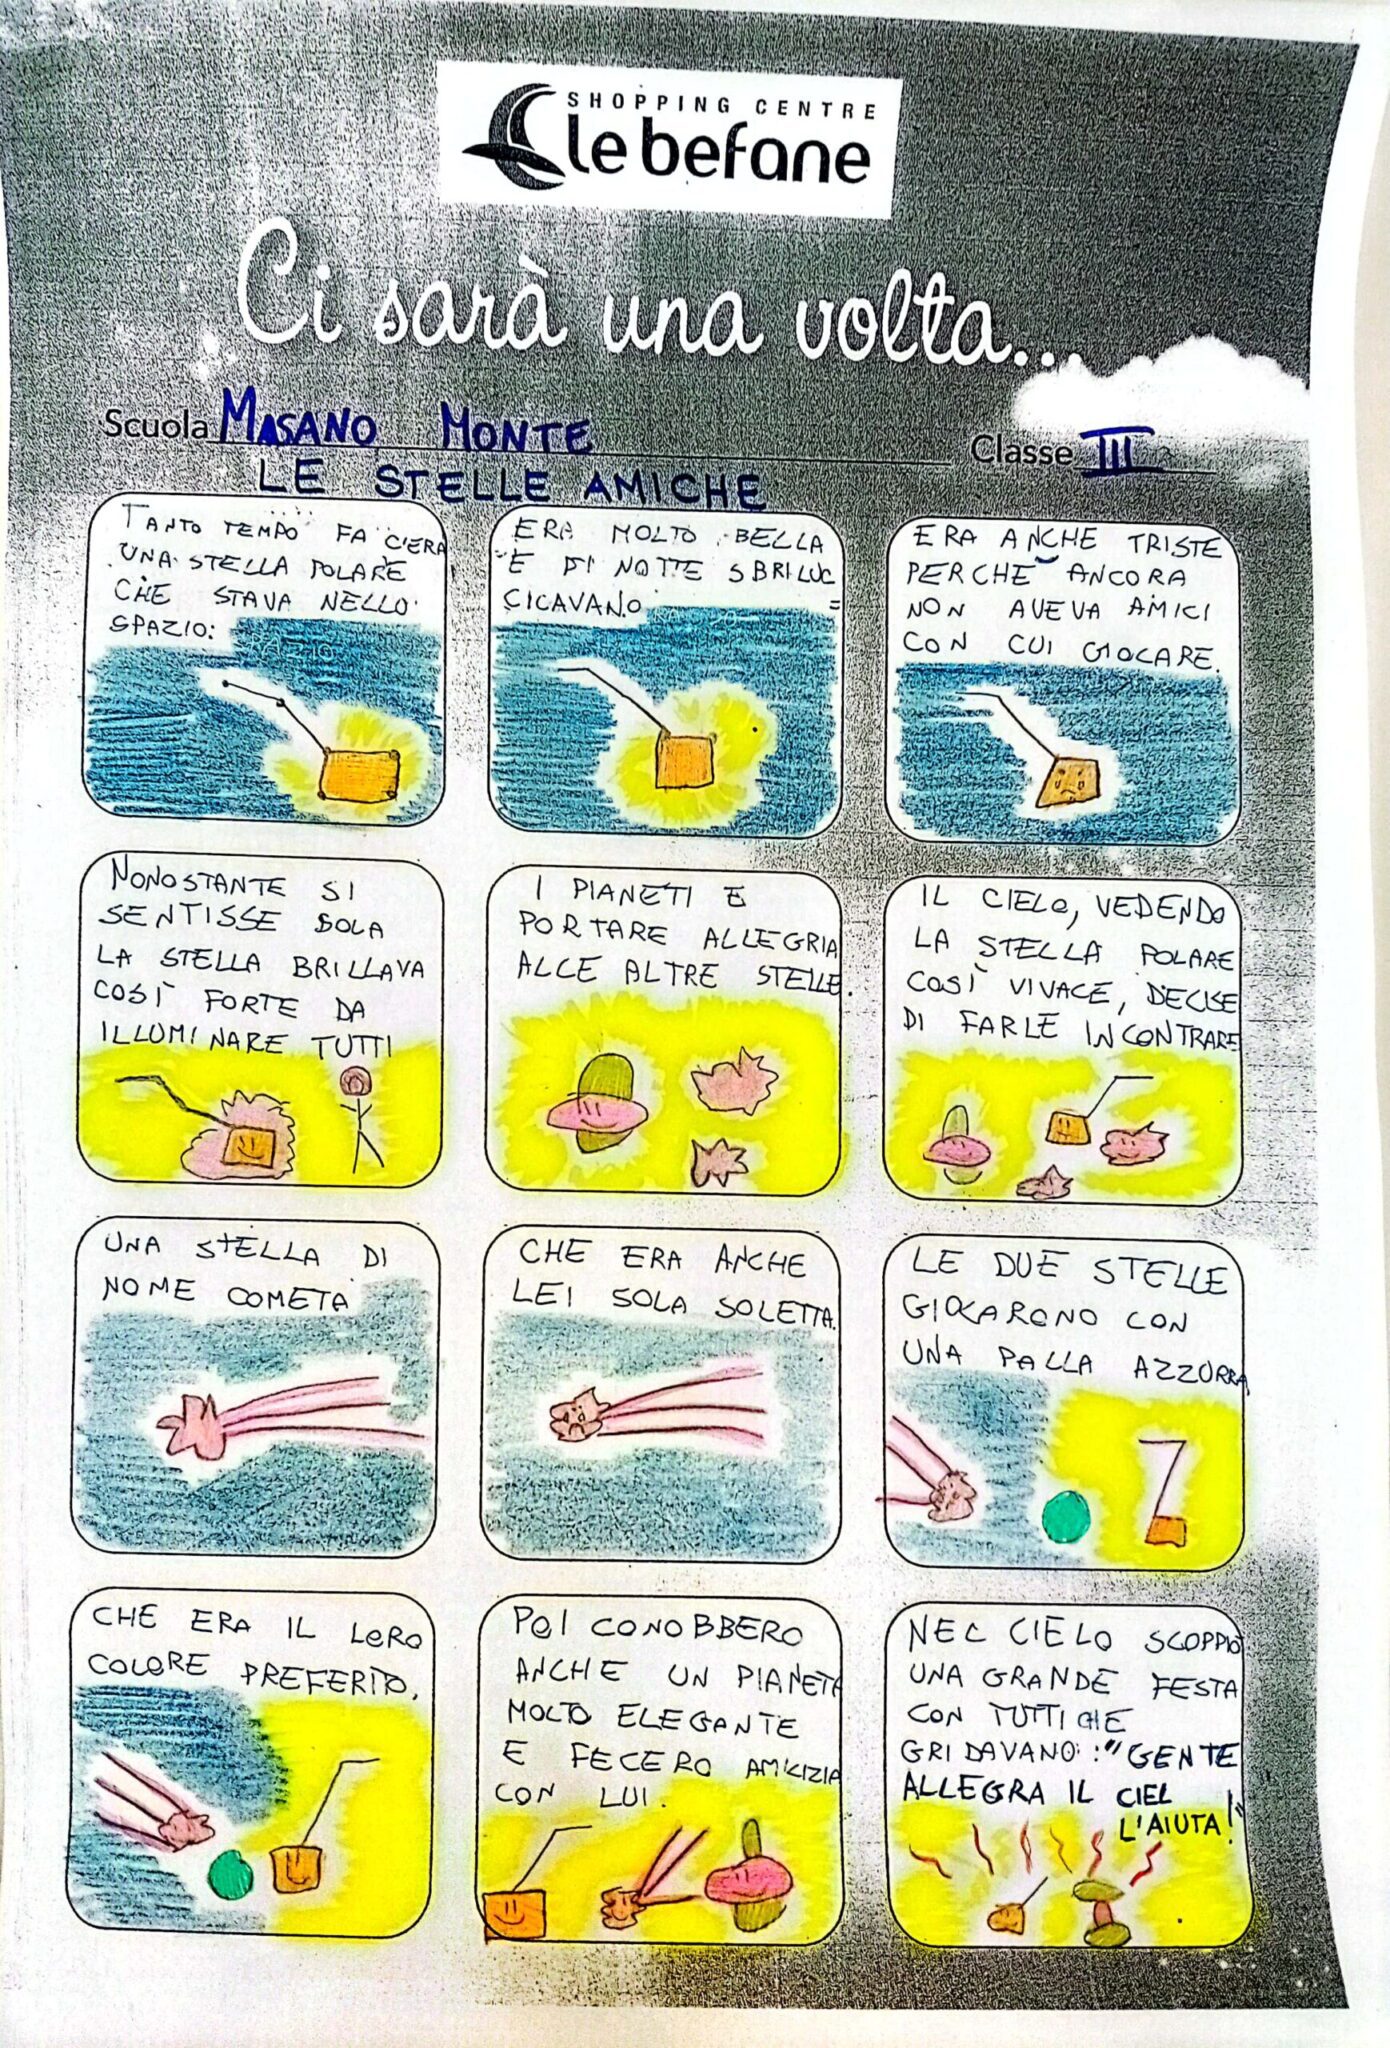 SHOPPING CENTRE
le befane
Ci sarà una volta...
Scuola MASANO MONTE
Classe III
LE STELLE AMICHE
TANTO TEMPO FA C'ERA
UNA STELLA POLARE
CHE STAVA NELLO
SPAZIO:
ERA MOLTO BELLA
E DI NOTTE SBRILUC
CICAVANO =
ERA ANCHE TRISTE
PERCHE ANCORA
NON AVEVA AMICI
CON CUI GIOCARE.
NONOSTANTE SI
SENTISSE SOLA
LA STELLA BRILLAVA
COSÌ FORTE DA
ILLUMINARE TUTTI
I PIANETI E
PORTARE ALLEGRIA
ALLE ALTRE STELLE.
IL CIELO, VEDENDO
LA STELLA POLARE
COSÌ VIVACE, DECISE
DI FARLE INCONTRARE
UNA STELLA DI
NOME COMETA
CHE ERA ANCHE
LEI SOLA SOLETTA.
LE DUE STELLE
GIOCARONO CON
UNA PALLA AZZURRA
CHE ERA IL LORO
COLORE PREFERITO.
POI CONOBBERO
ANCHE UN PIANETA
MOLTO ELEGANTE
E FECERO AMICIZIA
CON LUI.
NEL CIELO SCOPPIÒ
UNA GRANDE FESTA
CON TUTTI CHE
GRIDAVANO: "GENTE
ALLEGRA IL CIEL
L'AIUTA!"